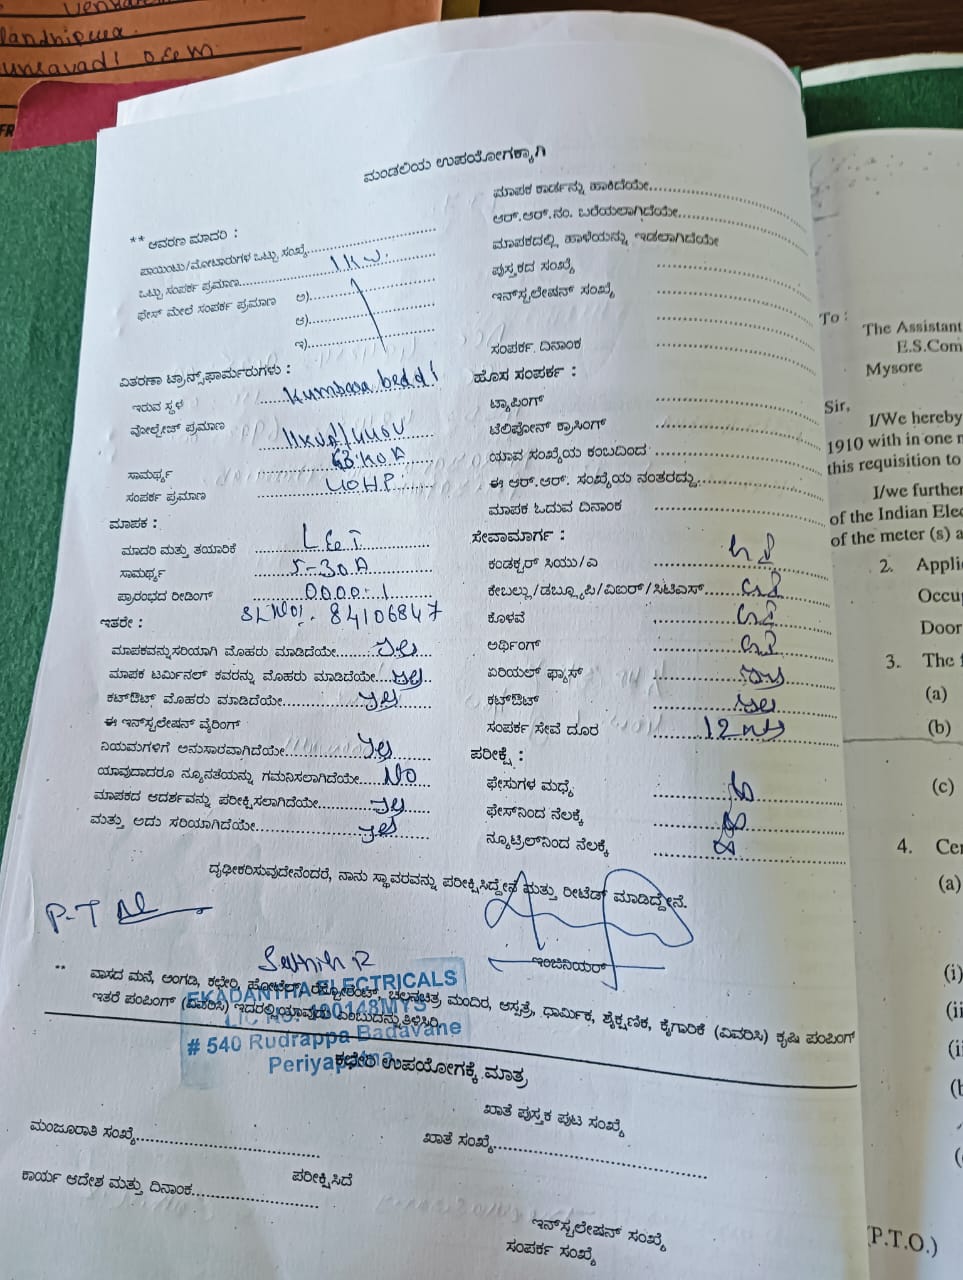 landhipura
ಮಂಡಲಿಯ ಉಪಯೋಗಕ್ಕಾಗಿ
** ಆವರಣ ಮಾದರಿ :
ಪಾಯಿಂಟು/ಮೋಟಾರುಗಳ ಒಟ್ಟು ಸಂಖ್ಯೆ
ಒಟ್ಟು ಸಂಪರ್ಕ ಪ್ರಮಾಣ 1KW.
ಫೇಸ್ ಮೇಲೆ ಸಂಪರ್ಕ ಪ್ರಮಾಣ ಅ)
ಆ)
ಇ)
ವಿತರಣಾ ಟ್ರಾನ್ಸ್‌ಫಾರ್ಮರುಗಳು :
ಇರುವ ಸ್ಥಳ
ವೋಲ್ಟೇಜ್ ಪ್ರಮಾಣ
ಸಾಮರ್ಥ್ಯ 63 KVA
ಸಂಪರ್ಕ ಪ್ರಮಾಣ
ಮಾಪಕ :
ಮಾದರಿ ಮತ್ತು ತಯಾರಿಕೆ L&T
ಸಾಮರ್ಥ್ಯ 5-30A
ಪ್ರಾರಂಭದ ರೀಡಿಂಗ್ 0000.1
ಇತರೇ : SL No: 84106847
ಮಾಪಕವನ್ನು ಸರಿಯಾಗಿ ಮೊಹರು ಮಾಡಿದೆಯೇ yes
ಮಾಪಕ ಟರ್ಮಿನಲ್ ಕವರನ್ನು ಮೊಹರು ಮಾಡಿದೆಯೇ yes
ಕಟ್‌ಔಟ್ ಮೊಹರು ಮಾಡಿದೆಯೇ yes
ಈ ಇನ್‌ಸ್ಟಲೇಷನ್ ವೈರಿಂಗ್
ನಿಯಮಗಳಿಗೆ ಅನುಸಾರವಾಗಿದೆಯೇ yes
ಯಾವುದಾದರೂ ನ್ಯೂನತೆಯನ್ನು ಗಮನಿಸಲಾಗಿದೆಯೇ No
ಮಾಪಕದ ಆದರ್ಶವನ್ನು ಪರೀಕ್ಷಿಸಲಾಗಿದೆಯೇ yes
ಮತ್ತು ಅದು ಸರಿಯಾಗಿದೆಯೇ yes
ಮಾಪಕ ಕಾರ್ಡನ್ನು ಹಾಕಿದೆಯೇ
ಆರ್.ಆರ್.ನಂ. ಬರೆಯಲಾಗಿದೆಯೇ
ಮಾಪಕದಲ್ಲಿ ಹಾಳೆಯನ್ನು ಇಡಲಾಗಿದೆಯೇ
ಪುಸ್ತಕದ ಸಂಖ್ಯೆ
ಇನ್‌ಸ್ಟಲೇಷನ್ ಸಂಖ್ಯೆ
ಸಂಪರ್ಕ ದಿನಾಂಕ
ಹೊಸ ಸಂಪರ್ಕ :
ಟ್ಯಾಪಿಂಗ್
ಟೆಲಿಫೋನ್ ಕ್ರಾಸಿಂಗ್
ಯಾವ ಸಂಖ್ಯೆಯ ಕಂಬದಿಂದ
ಈ ಆರ್.ಆರ್. ಸಂಖ್ಯೆಯ ನಂತರದ್ದು
ಮಾಪಕ ಓದುವ ದಿನಾಂಕ
ಸೇವಾಮಾರ್ಗ :
ಕಂಡಕ್ಟರ್ ಸಿಯು/ಎ
ಕೇಬಲ್ಲು/ಡಬ್ಲ್ಯೂಪಿ/ವಿಐಆರ್/ಸಿಟಿಎಸ್
ಕೊಳವೆ
ಅರ್ಥಿಂಗ್
ಏರಿಯಲ್ ಫ್ಯೂಸ್
ಕಟ್‌ಔಟ್ yes
ಸಂಪರ್ಕ ಸೇವೆ ದೂರ 12 mts
ಪರೀಕ್ಷೆ :
ಫೇಸುಗಳ ಮಧ್ಯೆ
ಫೇಸ್‌ನಿಂದ ನೆಲಕ್ಕೆ
ನ್ಯೂಟ್ರಲ್‌ನಿಂದ ನೆಲಕ್ಕೆ
ದೃಢೀಕರಿಸುವುದೇನೆಂದರೆ, ನಾನು ಸ್ಥಾವರವನ್ನು ಪರೀಕ್ಷಿಸಿದ್ದೇನೆ ಮತ್ತು ರೀಟೆಡ್ ಮಾಡಿದ್ದೇನೆ.
ಇಂಜಿನಿಯರ್
** ವಾಸದ ಮನೆ, ಅಂಗಡಿ, ಕಛೇರಿ, ಹೋಟೆಲ್, ರೆಸ್ಟೋರೆಂಟ್, ಚಲನಚಿತ್ರ ಮಂದಿರ, ಆಸ್ಪತ್ರೆ, ಧಾರ್ಮಿಕ, ಶೈಕ್ಷಣಿಕ, ಕೈಗಾರಿಕೆ (ವಿವರಿಸಿ) ಕೃಷಿ ಪಂಪಿಂಗ್
ಇತರೆ ಪಂಪಿಂಗ್ (ವಿವರಿಸಿ) ಇದರಲ್ಲಿ ಯಾವುದು ಎಂಬುದನ್ನು ತಿಳಿಸಿರಿ.
EKADANTHA ELECTRICALS
# 540 Rudrappa Badavane
ಕಛೇರಿ ಉಪಯೋಗಕ್ಕೆ ಮಾತ್ರ
ಮಂಜೂರಾತಿ ಸಂಖ್ಯೆ
ಕಾರ್ಯ ಆದೇಶ ಮತ್ತು ದಿನಾಂಕ
ಪರೀಕ್ಷಿಸಿದೆ
ಖಾತೆ ಪುಸ್ತಕ ಪುಟ ಸಂಖ್ಯೆ
ಖಾತೆ ಸಂಖ್ಯೆ
ಇನ್‌ಸ್ಟಲೇಷನ್ ಸಂಖ್ಯೆ
ಸಂಪರ್ಕ ಸಂಖ್ಯೆ
To :
The Assistant
E.S.Com
Mysore
Sir,
I/We hereby
1910 with in one
this requisition to
I/we further
of the Indian Elec
of the meter (s) a
2. Appli
Occu
Door
3. The
(a)
(b)
(c)
4. Cer
(a)
(i)
(ii
(P.T.O.)